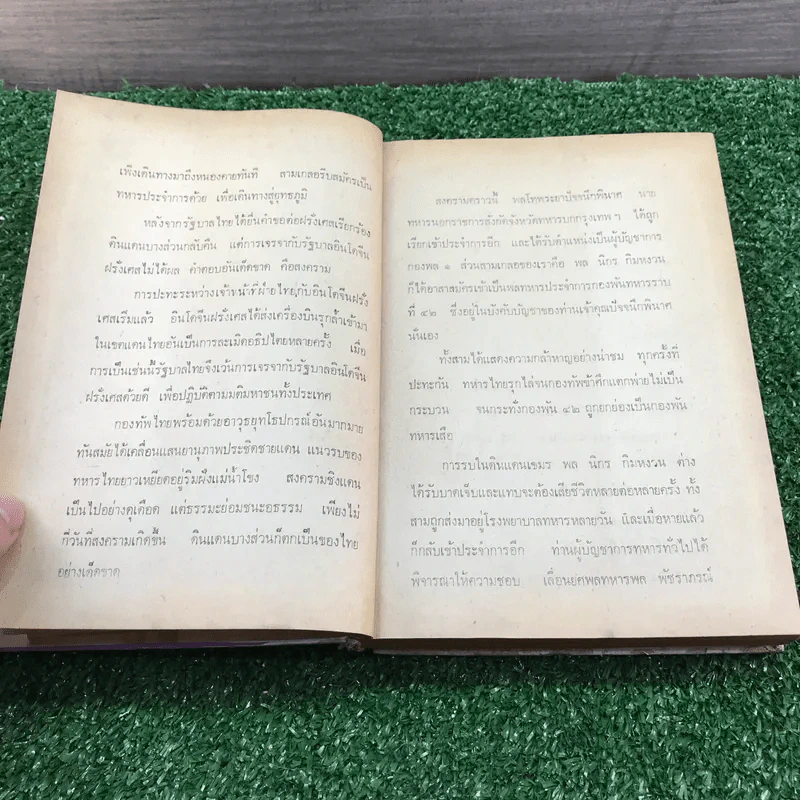 เพิ่งเดินทางมาถึงหนองคายทันที สามเกลอรีบสมัครเป็น
ทหารประจำการด้วย เพื่อเดินทางสู่ยุทธภูมิ
หลังจากรัฐบาลไทยได้ยื่นคำขอต่อฝรั่งเศสเรียกร้อง
ดินแดนบางส่วนกลับคืน แต่การเจรจากับรัฐบาลอินโดจีน
ฝรั่งเศสไม่ได้ผล คำตอบอันเด็ดขาด คือสงคราม
การปะทะระหว่างเจ้าหน้าที่ฝ่ายไทยกับอินโดจีนฝรั่ง
เศสเริ่มแล้ว อินโดจีนฝรั่งเศสได้ส่งเครื่องบินรุกล้ำเข้ามา
ในเขตแดนไทยอันเป็นการละเมิดอธิปไตยหลายครั้ง เมื่อ
การเป็นเช่นนี้รัฐบาลไทยจึงเว้นการเจรจากับรัฐบาลอินโดจีน
ฝรั่งเศสด้วยดี เพื่อปฏิบัติตามมติมหาชนทั้งประเทศ
กองทัพไทยพร้อมด้วยอาวุธยุทโธปกรณ์อันมากมาย
ทันสมัยได้เคลื่อนแสนยานุภาพประชิดชายแดน แนวรบของ
ทหารไทยยาวเหยียดอยู่ริมฝั่งแม่น้ำโขง สงครามชิงแดน
เป็นไปอย่างดุเดือด แต่ธรรมะย่อมชนะอธรรม เพียงไม่
กี่วันที่สงครามเกิดขึ้น ดินแดนบางส่วนก็ตกเป็นของไทย
อย่างเด็ดขาด
สงครามคราวนี้ พลโทพระยาปัจจนึกพินาศ นาย
ทหารนอกราชการสังกัดจังหวัดทหารบกกรุงเทพ ฯ ได้ถูก
เรียกเข้าประจำการอีก และได้รับตำแหน่งเป็นผู้บัญชาการ
กองพล ๑ ส่วนสามเกลอของเราคือ พล นิกร กิมหงวน
ก็ได้อาสาสมัครเข้าเป็นพลทหารประจำการกองพันทหารราบ
ที่ ๔๒ ซึ่งอยู่ในบังคับบัญชาของท่านเจ้าคุณปัจจนึกพินาศ
นั่นเอง
ทั้งสามได้แสดงความกล้าหาญอย่างน่าชม ทุกครั้งที่
ปะทะกัน ทหารไทยรุกไล่จนกองทัพข้าศึกแตกพ่ายไม่เป็น
กระบวน จนกระทั่งกองพัน ๔๒ ถูกยกย่องเป็นกองพัน
ทหารเสือ
การรบในดินแดนเขมร พล นิกร กิมหงวน ต่าง
ได้รับบาดเจ็บและแทบจะต้องเสียชีวิตหลายต่อหลายครั้ง ทั้ง
สามถูกส่งมาอยู่โรงพยาบาลทหารหลายวัน และเมื่อหายแล้ว
ก็กลับเข้าประจำการอีก ท่านผู้บัญชาการทหารทั่วไปได้
พิจารณาให้ความชอบ เลื่อนยศพลทหารพล พัชราภรณ์